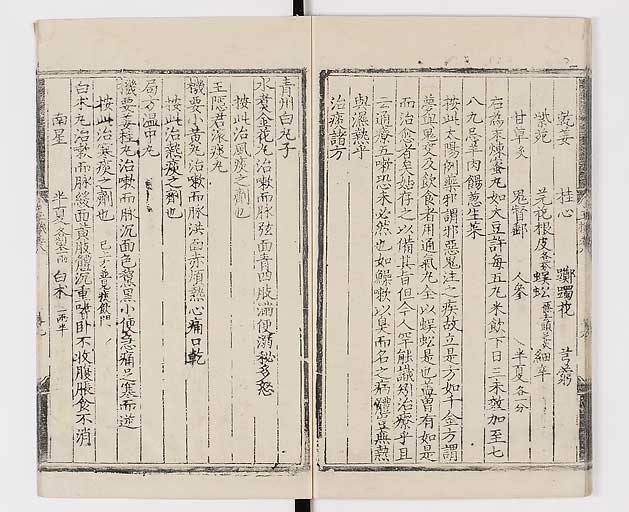 乾姜 桂心 躑躅花 芎藭
紫菀 芫花根皮 蜈蚣 細辛
甘草炙 鬼督郵 人參 半夏各一分
右爲末煉蜜丸如大豆許每五丸米飮下日三未效加至七
八丸忌羊肉餳葱生菜
按此太陽例藥邪謂邪惡鬼疰之疾故立是方如千金方謂
夢與鬼交及飮食者用通氣丸全以蜈蚣是也蓋曾有如是
而治愈者矣姑存之以備其旨但今人罕能識別治療乎且
云通療五嗽恐未必然也如鯹嗽以臭而名之病體豈無熱
與濕熱乎
治痰諸方
靑州白丸子
水煮金花丸治嗽而脉弦面靑四肢滿便溺秘多怒
按此治風痰之劑也
王隱君滾痰丸
機要小黃丸治嗽而脉洪面赤煩熱心痛口乾
按此治熱痰之劑也
局方溫中丸
機要姜桂丸治嗽而脉沉面色黧黑小便急痛足寒而逆
按此治寒痰之劑也 已上六並見痰飮門
白朮丸治嗽而脉緩面黃肢體沉重嗜卧不收腹脹食不消
南星 半夏各製一兩 白朮一兩半